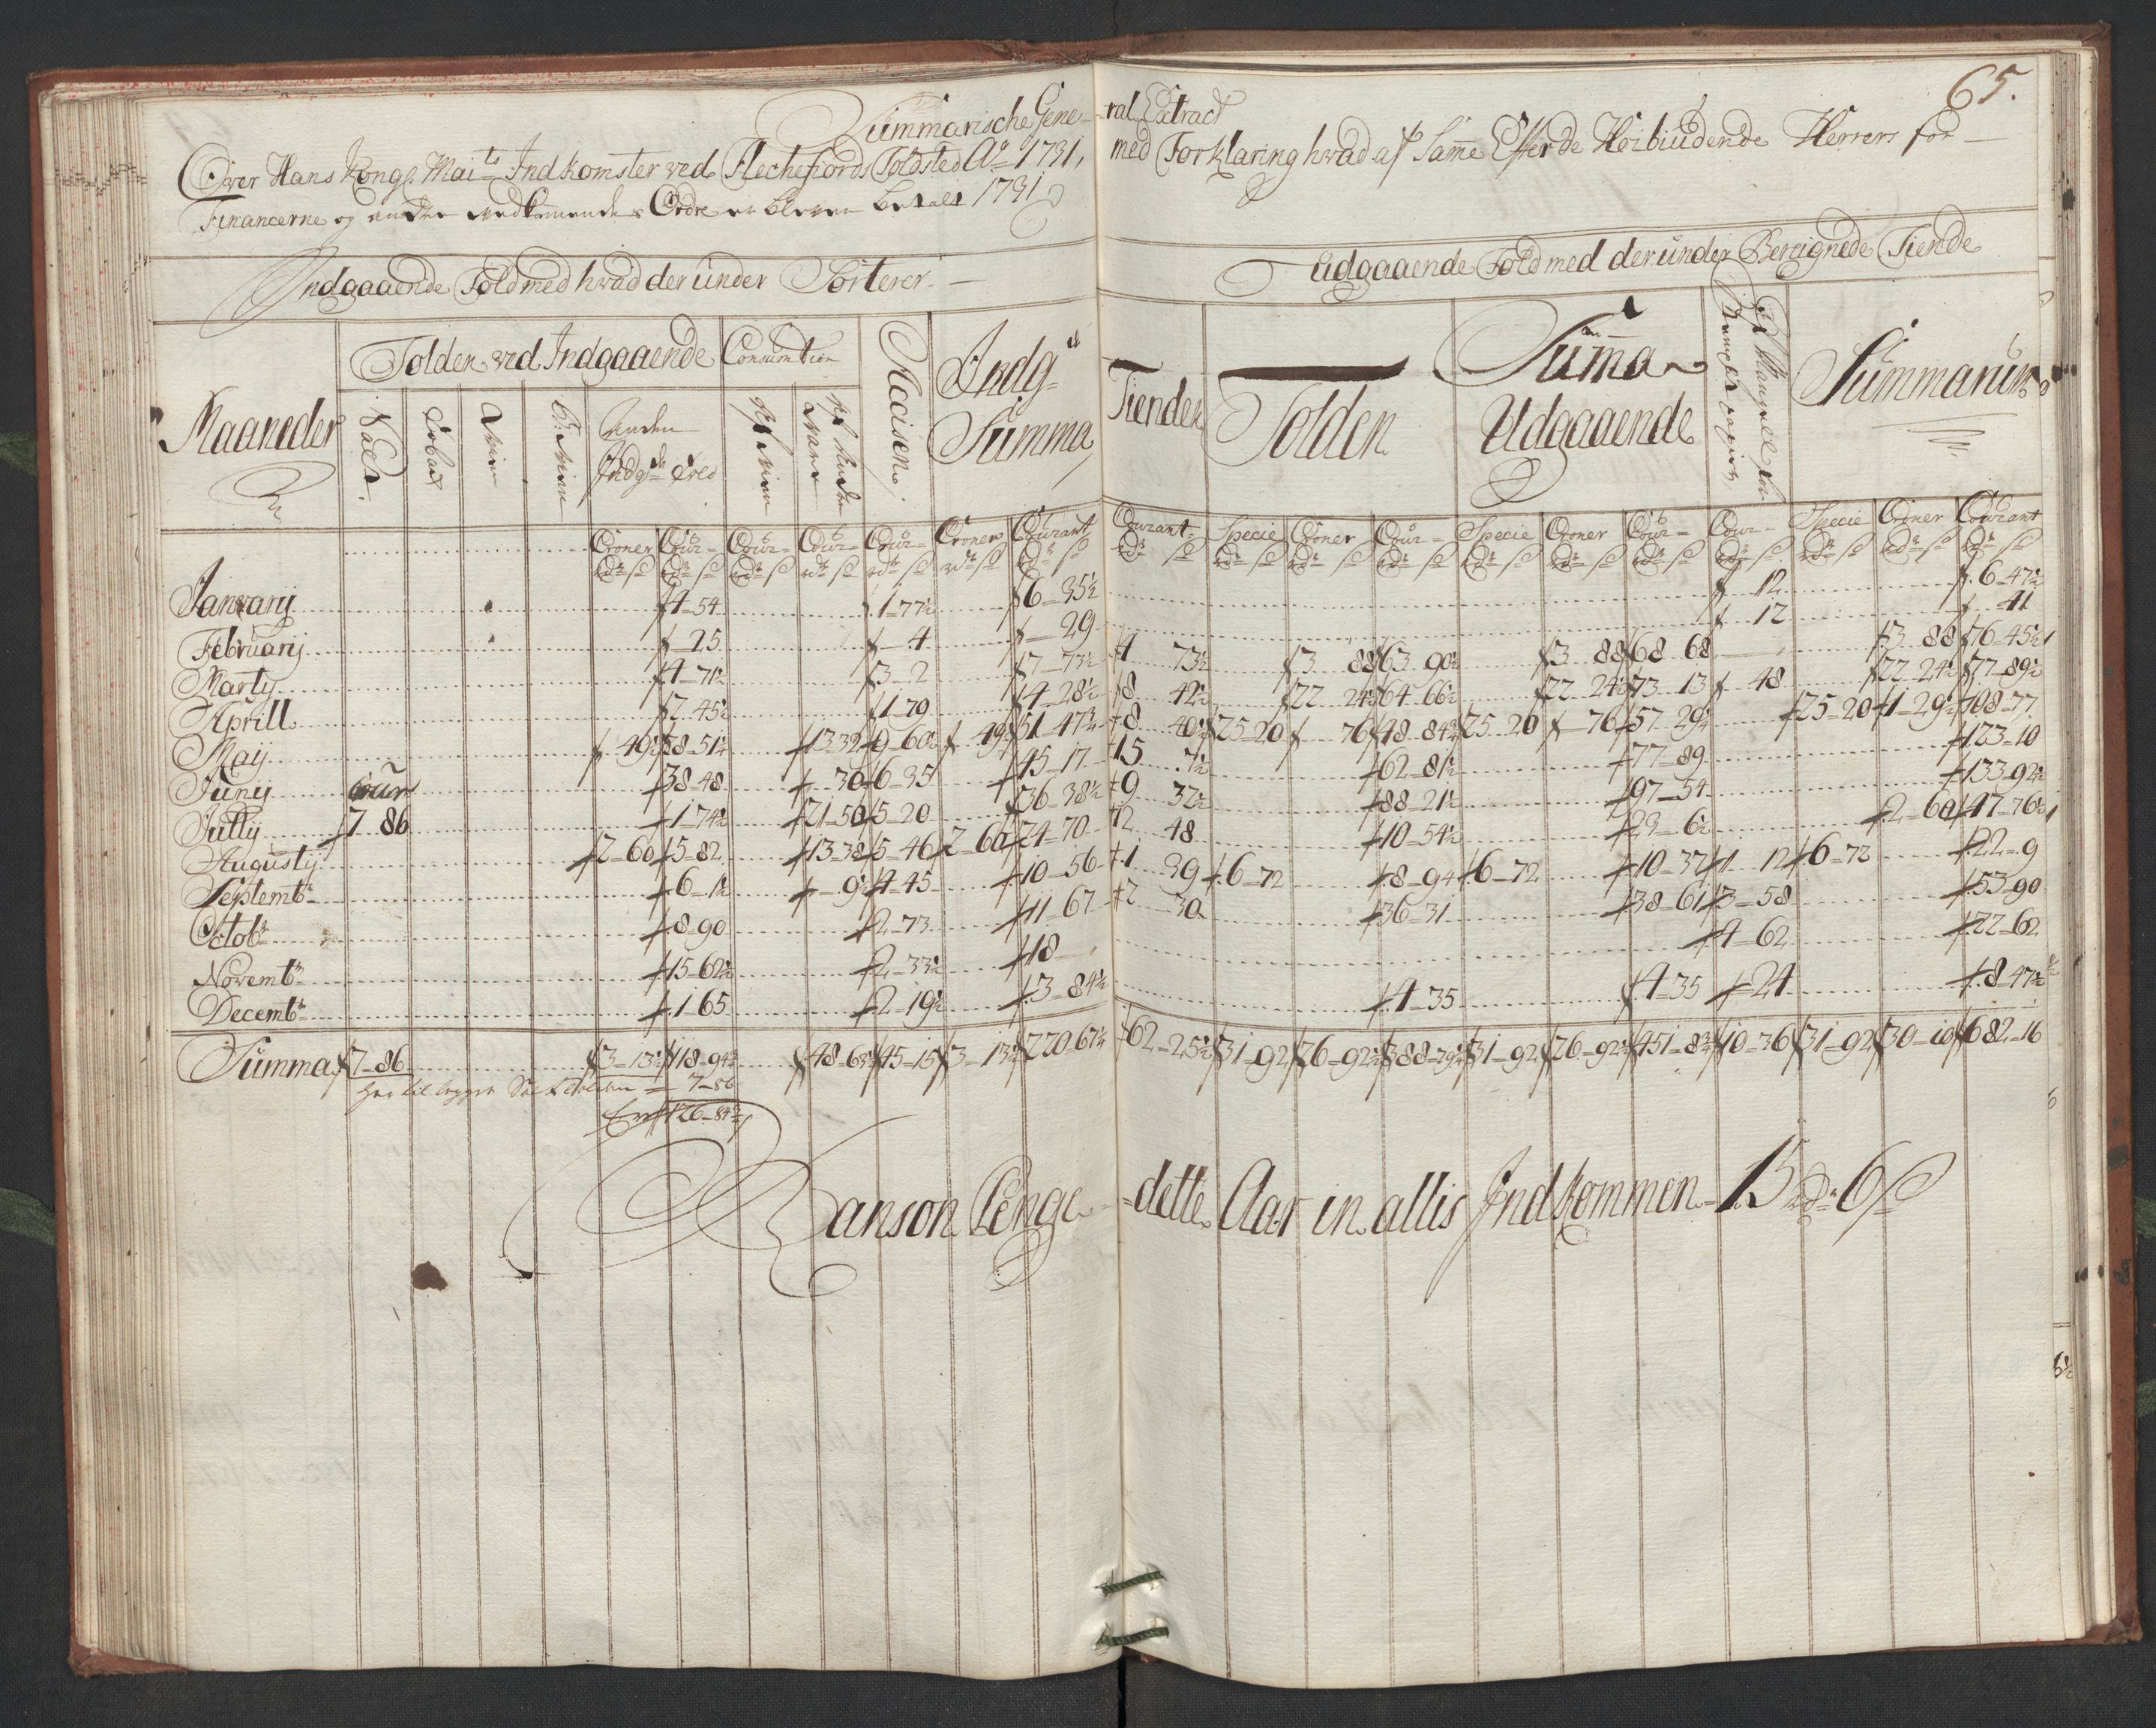 65.
Summarische Gene-ral Extract
Over Hans Kongl. Maits Indkomster ved Flechefiords Toldsted Ao 1731, med Forklaring hvad af Same Effter de Höibiudende Herrers for
Financerne og andre vedkommendes Ordre er bleven betalt 1731
Indgaaende Told med hvad der under Sorterer.
Udgaaende Told med derunder Bereignede Tiende
Maaneder
Tolden ved Indgaaende
Consumtion
Accisen
Indg
Summa
Tienden
Tolden
Suma
Udgaaende
Summarum
Salt
Tobak
Anden
Indgde
Croner Cour Cour Cour Cour Croner Courant Courant Specie Croner Cour Specie Croner Cour Cour Specie Croner Courant
Januarij 4-54 1-77½ 6-35½ 12 6-47½
Februarij 25 4 29 12 41
Martij 4-71½ 3-2 7-73½ 4 73½ 3 88 63 90½ 3 88 68 68 3 88 76-45½
Aprill 2-45½ 1-79 4-28½ 8 42½ 22 24½ 64 66½ 22 24½ 73 13 48 22 24½ 77-89½
Maij 49½ 28-51¼ 13 32 9-60½ 49½ 51-47¾ 8 40½ 25-20 76 48-84¾ 25 20 76 57-29¼ 25-20 1-29½ 108-77
Junij Cour 38-48 30 6-35 45-17 15 7½ 62-81½ 77-89 123-10
Jullij 7 86 1-74½ 21-50 5-20 36-38½ 9 32½ 88-21½ 97-54 133-92½
Augustij 2-60 5-82 13-38 5-46 2-60 24-70 12 48 10-54½ 23-6½ 2-60 47-76½
Septembr 6-1½ 9½ 4-45 10-56 1 39 6-72 8-94 6-72 10-37 1 12 6-72 22-9
Octobr 8-90 2-73 11-67 2 30 36-31 38-61 3-58 53-90
Novembr 15-62½ 2-33½ 18 4-62 22-62
Decembr 1-65 2-19½ 3-84½ 4-35 4-35 24 8-47½
Summa 7-86 3-13½ 118-94¾ 48-63½ 45-15 3-13½ 220-67¼ 62-25½ 31-92 26-92½ 388-79¼ 31-92 26-92½ 451-8¾ 10-36 31-92 30-10 682-16
her til legges Salt Tolden 7-86
Er 126-84¾
Ranson Penge dette Aar in allis Indkommen 15 rdr 6 s